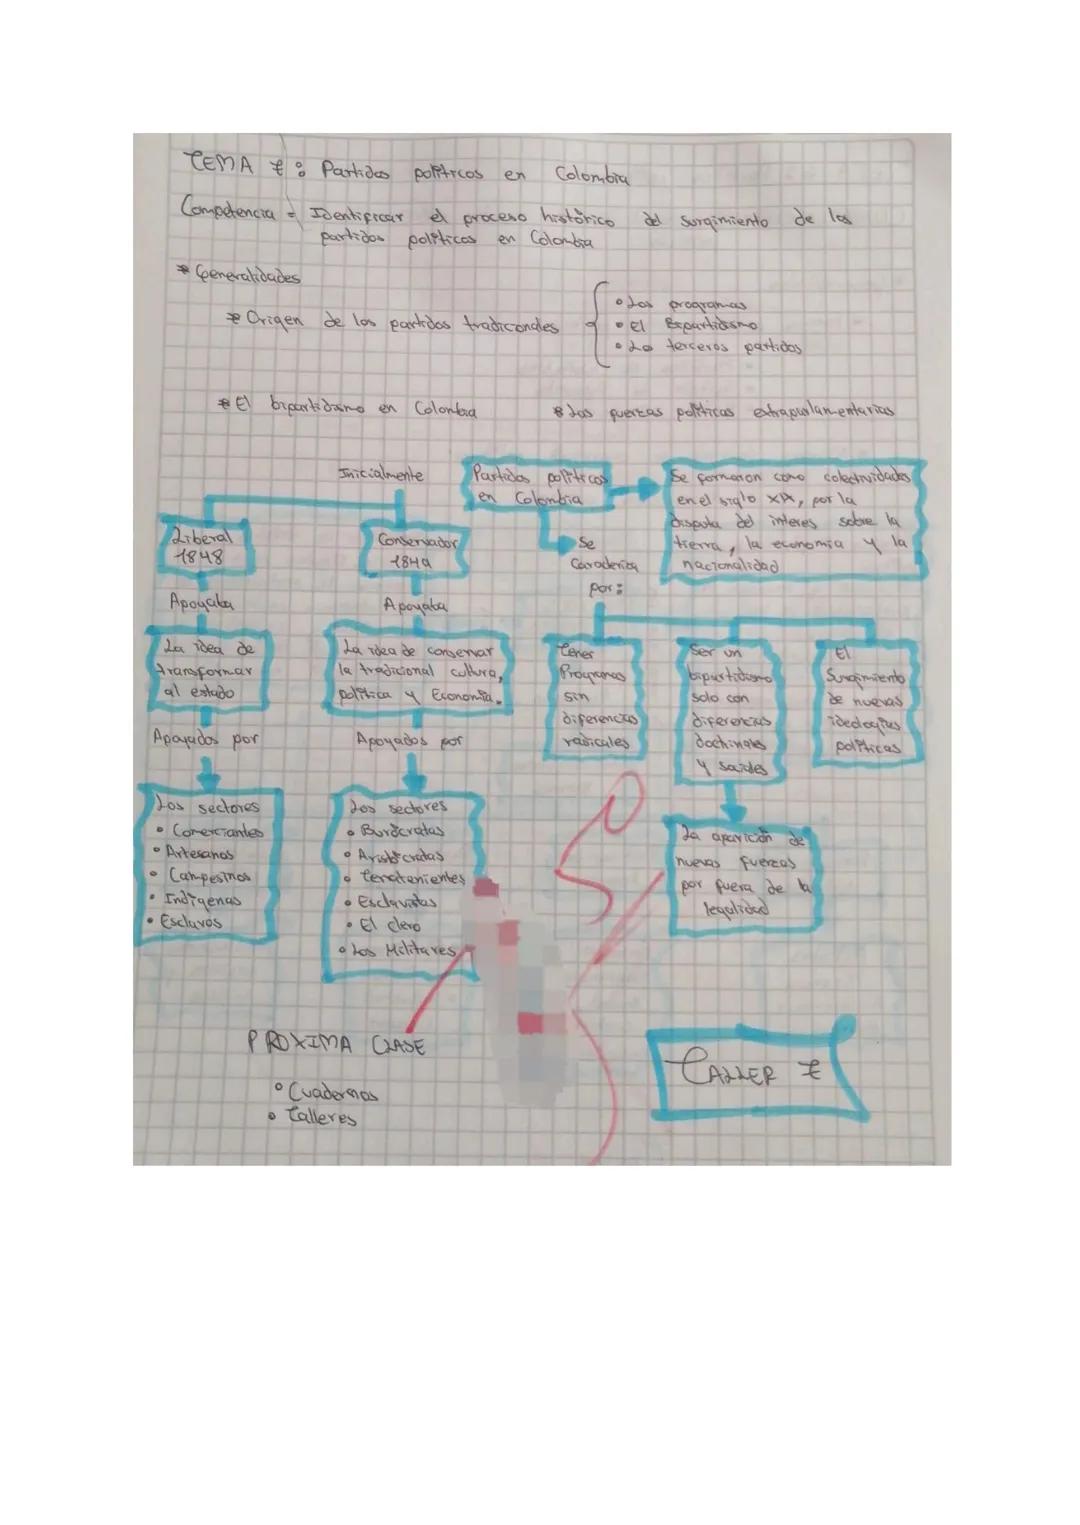 TEMA 7: Partidos políticos en Colombia
Competencia = Identificar el proceso histórico del surgimiento de los
partidos políticos en Colombia
* Generalidades
* Origen de los partidos tradiconales
• Los programas
• El Bipartidismo
• Lo terceros partidos
* El bipartidismo en Colombia
* Las fuerzas políticas extraparlamentarias
Inicialmente
Partidos políticos
en Colombia
Se formaron como colectividades
en el siglo XIX, por la
disputa del interes sobre la
tierra, la economía y la
nacionalidad
Liberal
1848
Conservador
1849
Se
Caracteriza
por:
Apoyaba
Apoyaba
La idea de
transformar
al estado
La idea de conservar
la tradicional cultura,
política y Economía.
Tener
Programas
sin
diferencias
radicales
Ser un
bipartidismo
solo con
diferencias
doctrinales
y sociales
El
Surgimiento
de nuevas
ideologías
políticas
Apoyados por
Apoyados por
Los sectores
• Comerciantes
• Artesanos
• Campesinos
• Indígenas
• Esclavos
Los sectores
• Burócratas
• Aristócratas
• Terratenientes
• Esclavistas
• El clero
• Los Militares
La aparición de
nuevas fuerzas
por fuera de la
legalidad
PROXIMA CLASE
• Cuadernos
• Talleres
TALLER 7